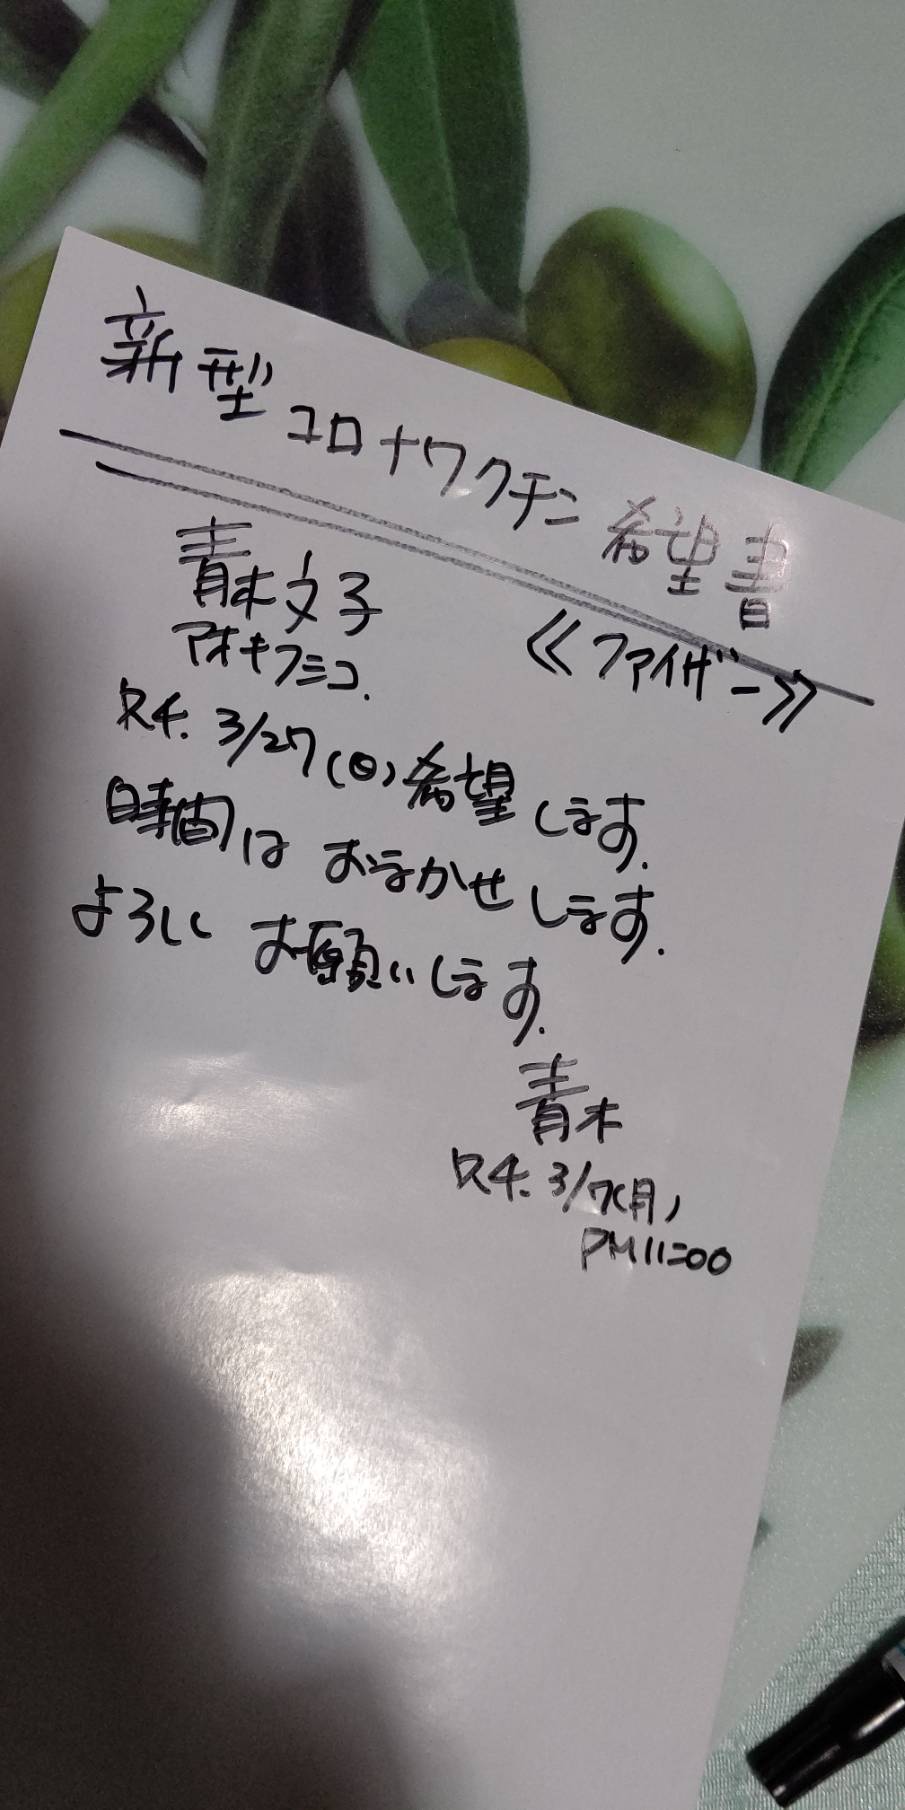 新型コロナワクチン希望書
青木文子
≪ファイザー≫
アオキフミコ.
R4. 3/27(日)希望します.
時間はおまかせします.
よろしくお願いします.
青木
R4. 3/7(月)
PM11:00